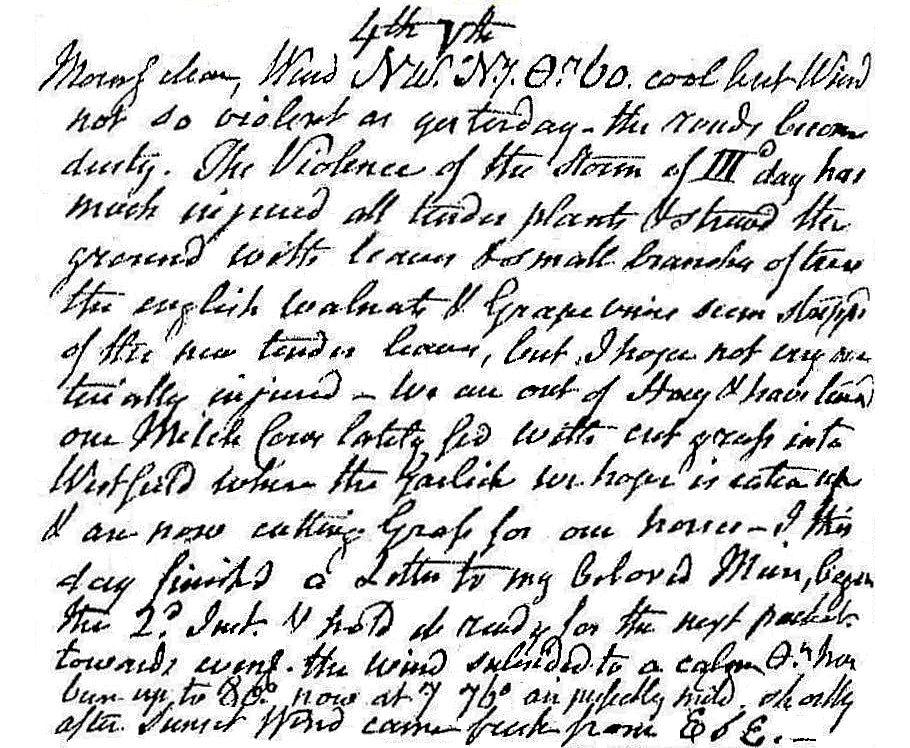 4th Vth
Morng clear, Wind NW. Ny. Θr 60. cool but Wind
not so violent as yesterday - the roads becom
dusty. The Violence of the Storm of IIId day has
much injured all tender plants & strewd the
ground with leaves & small branches of trees
the english walnuts & Grapevines seem stripp'd
of the new tender leaves, but I hope not very ma
terially injured - We are out of Hay & have turnd
our Milch Cows lately fed with cut grass into
Westfield where the Garlick we hope is eaten up
& are now cutting Grass for our horses - I this
day finish'd a Letter to my beloved Mira, began
the 2d. Inst. & hold it ready for the next packet.
towards eveng. the wind subsided to a calm Θr has
been up to 80° now at 7 76° air perfectly mild. shortly
after Sunset Wind came fresh from E b E. -